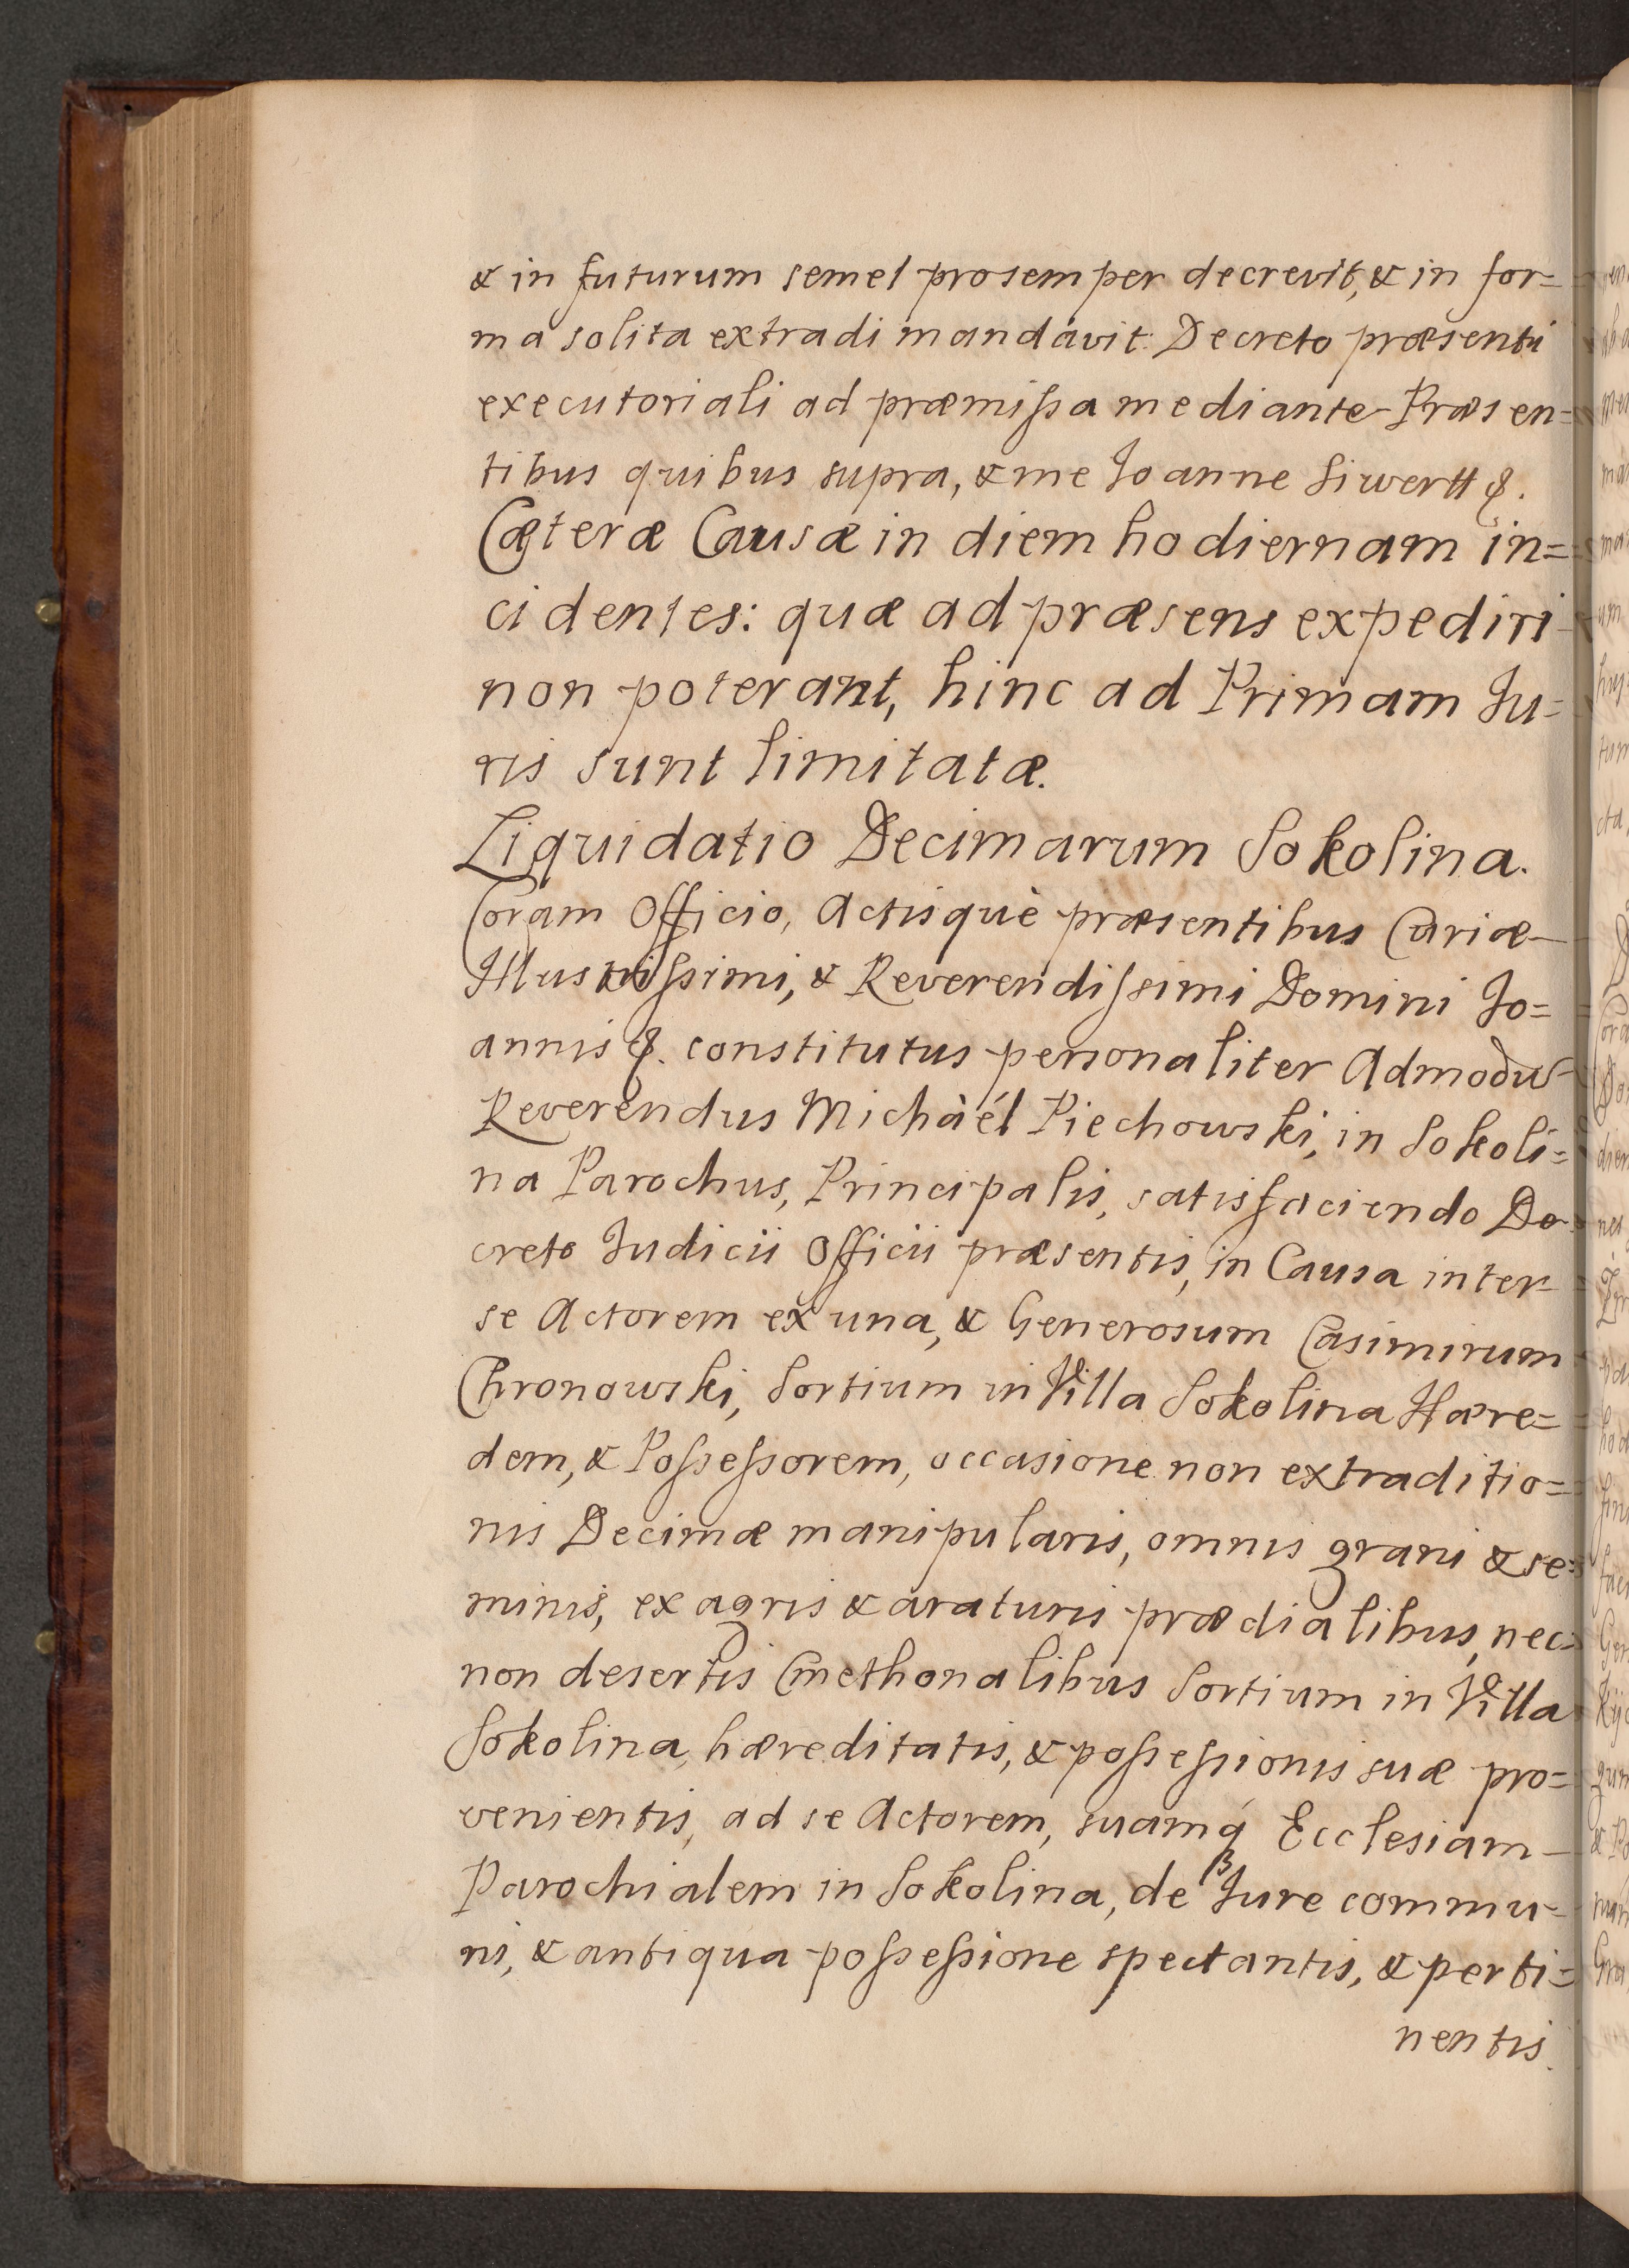 & in futurum semel prosemper decrevit, & in for=
ma solita extradi mandavit Decreto præsenti
executoriali ad præmissa mediante Præsen=
tibus quibus supra, & me Joanne Siwertt &.
Cæteræ Causæ in diem hodiernam in=
cidentes: quæ ad præsens expediri
non poterant, hinc ad Primam Ju=
ris sunt limitatæ.
Liquidatio Decimarum Sokolina.
Coram Officio, Actisquè præsentibus Curiæ
Illustrissimi, & Reverendissimi Domini Jo=
annis &. constitutus personaliter Admodū
Reverendus Michàél Piechowski, in Sokoli=
na Parochus, Principalis, satisfaciendo De
creto Judicii Officii præsentis, in Causa inter
se Actorem ex una, & Generosum Casimirum
Chronowski, Sortium in Villa Sokolina Hære=
dem, & Possessorem, occasione non extraditio=
nis Decimæ manipularis, omnis grani & se=
minis, ex agris & araturis prædialibus, nec=
non desertis Cmethonalibus Sortium in Villa
Sokolina, hæreditatis, & possessionis suæ pro=
venientis, ad se Actorem, suamq́ Ecclesiam
Parochialem in Sokolina, de Jure commu=
ni, & antiqua possessione spectantis, & perti=
nentis